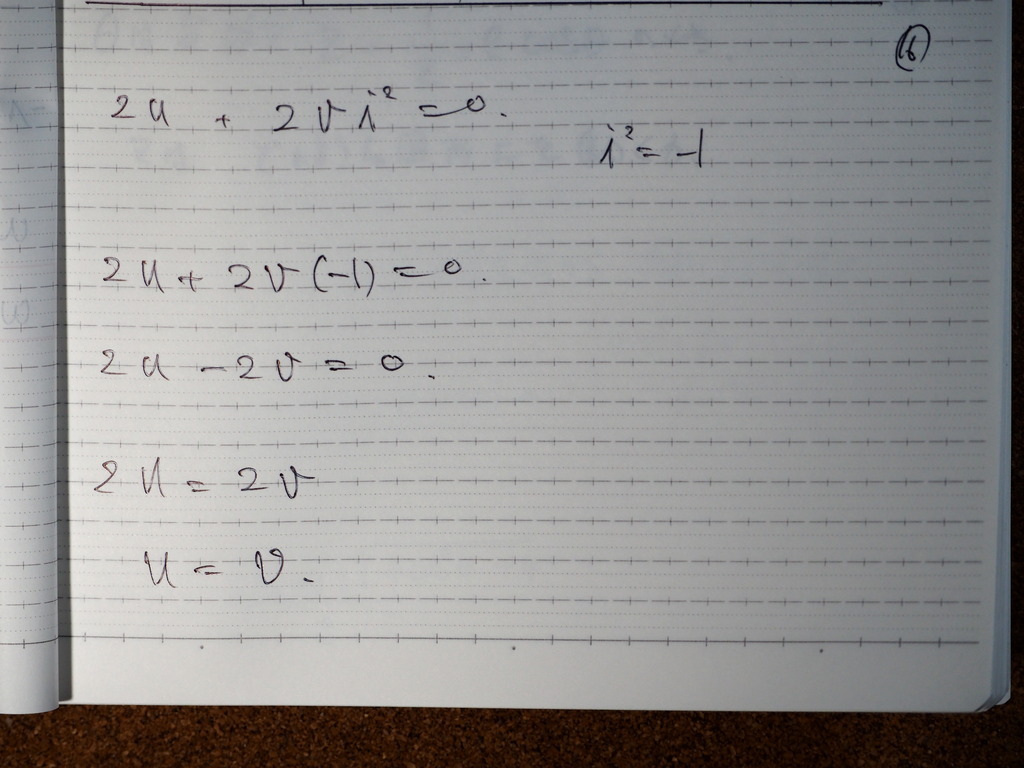 (6)
2u + 2vi² = 0.
i² = -1
2u + 2v(-1) = 0.
2u - 2v = 0.
2u = 2v
u = v.